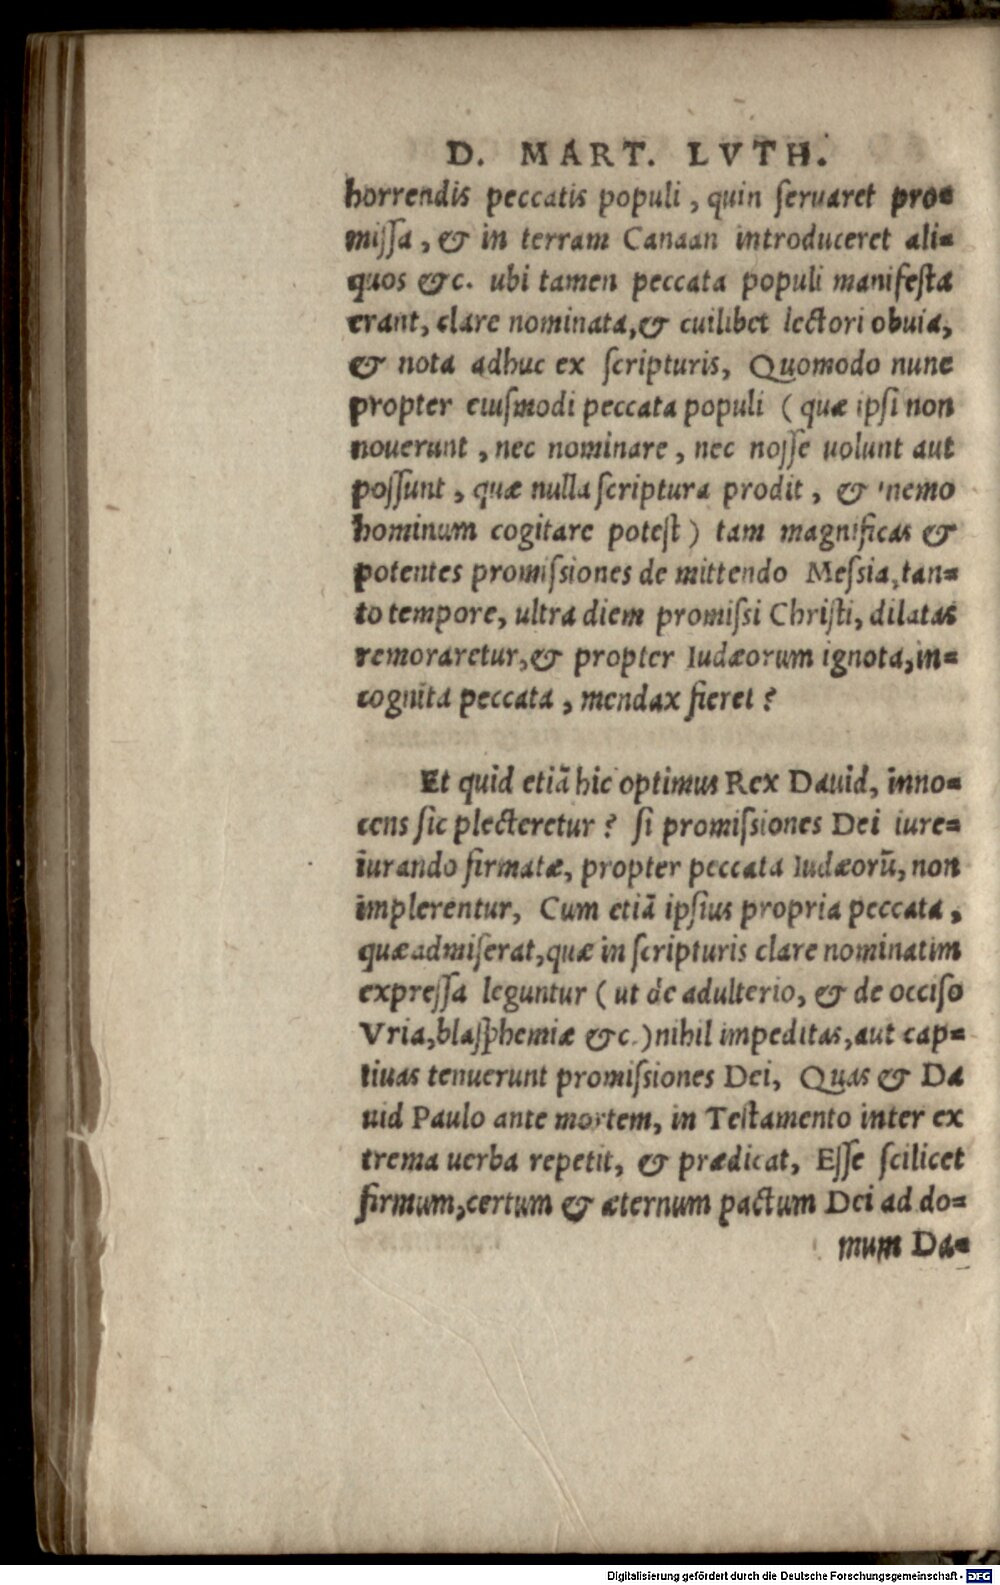 D. MART. LVTH.
horrendis peccatis populi, quin ſeruaret pro=
miſſa, & in terram Canaan introduceret ali=
quos &c. ubi tamen peccata populi manifeſta
erant, clare nominata, & cuilibet lectori obuia,
& nota adhuc ex ſcripturis, Quomodo nunc
propter eiuſmodi peccata populi (quæ ipſi non
nouerunt, nec nominare, nec noſſe uolunt aut
poſſunt, quæ nulla ſcriptura prodit, & nemo
hominum cogitare poteſt) tam magnificas &
potentes promiſsiones de mittendo Meſsia, tan=
to tempore, ultra diem promiſsi Chriſti, dilatas
remoraretur, & propter Iudæorum ignota, in=
cognita peccata, mendax fieret?
Et quid etiã hic optimus Rex Dauid, inno=
cens ſic plecteretur? ſi promiſsiones Dei iure=
iurando firmatæ, propter peccata Iudæorũ, non
implerentur, Cum etiã ipſius propria peccata,
quæ admiſerat, quæ in ſcripturis clare nominatim
expreſſa leguntur (ut de adulterio, & de occiſo
Vria, blaſphemiæ &c.) nihil impeditas, aut cap=
tiuas tenuerunt promiſsiones Dei, Quas & Da
uid Paulo ante mortem, in Teſtamento inter ex
trema uerba repetit, & prædicat, Eſſe ſcilicet
firmum, certum & æternum pactum Dei ad do=
mum Da=
Digitalisierung gefördert durch die Deutsche Forschungsgemeinschaft - DFG